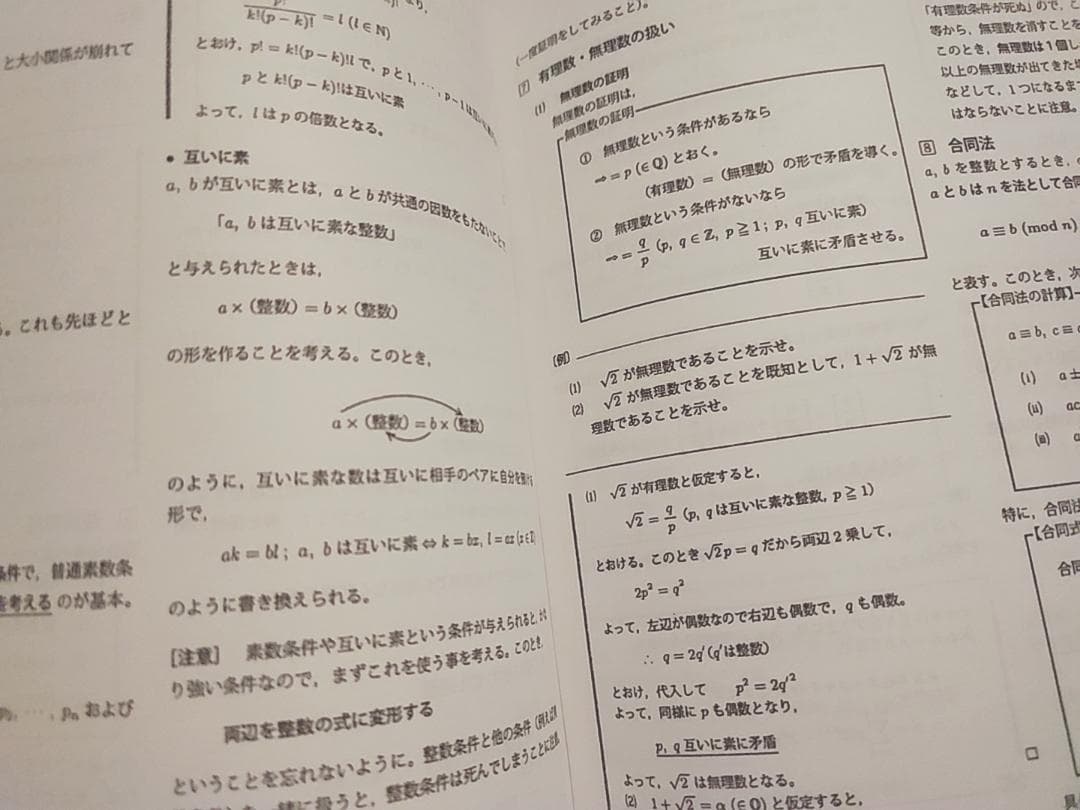 と大小関係が崩れて
。これも先ほどと
条件で，普通素数条
を考える のが基本。
…, pₙ および
p!/k!(p−k)! = l (l∈N)
とおけ，p! = k!(p−k)!l で，p と 1, …, p−1 は互いに素
p と k!(p−k)! は互いに素
よって，l は p の倍数となる。
• 互いに素
a, b が互いに素とは，a と b が共通の因数をもたないことで
「a, b は互いに素な整数」
と与えられたときは，
a×(整数) = b×(整数)
の形を作ることを考える。このとき，
a×(整数) = b×(整数)
のように，互いに素な数は互いに相手のペアに自分を預ける
形で，
ak = bl ; a, b は互いに素 ⇔ k = bz, l = az (z∈Z)
のように書き換えられる。
[注意] 素数条件や互いに素という条件が与えられると，かな
り強い条件なので，まずこれを使う事を考える。このとき，
両辺を整数の式に変形する
ということを忘れないように。整数条件と他の条件
一緒に扱うと，整数条件は死んでしまうことに注意
(一度証明をしてみること)。
[7] 有理数・無理数の扱い
(1) 無理数の証明
無理数の証明は，
無理数の証明
① 無理数という条件があるなら
⇒ = p (∈Q) とおく。
(有理数) = (無理数) の形で矛盾を導く。
② 無理数という条件がないなら
⇒ = q/p (p, q∈Z, p≧1 ; p, q 互いに素)
互いに素に矛盾させる。
(例)
(1) √2 が無理数であることを示せ。
(2) √2 が無理数であることを既知として，1+√2 が無
理数であることを示せ。
(1) √2 が有理数と仮定すると，
√2 = q/p (p, q は互いに素な整数, p≧1)
とおける。このとき √2p = q だから両辺 2 乗して，
2p² = q²
よって，左辺が偶数なので右辺も偶数で，q も偶数。
∴ q = 2q′ (q′は整数)
とおけ，代入して p² = 2q′²
よって，同様に p も偶数となり，
p, q 互いに素に矛盾
よって，√2 は無理数となる。
□
(2) 1+√2 = a (∈Q) と仮定すると，
「有理数条件が死ぬ」ので，こ
等から，無理数を消すことを
このとき，無理数は1個し
以上の無理数が出てきた場
などして，1つになるまで
はならないことに注意。
[8] 合同法
a, b を整数とするとき，
a と b は n を法として合同
a ≡ b (mod n)
と表す。このとき，次
【合同法の計算】
a ≡ b, c ≡
(i) a ±
(ii) ac
(iii) a
特に，合同法
【合同式
合同